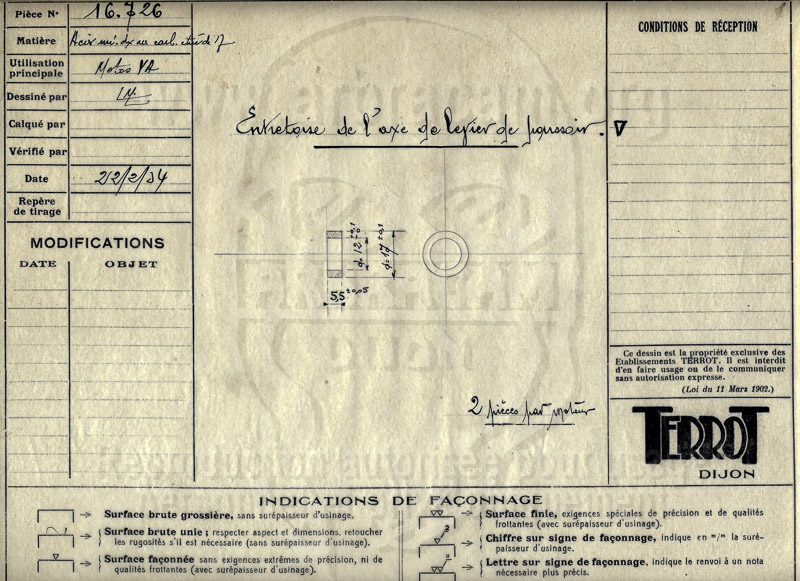 Pièce N° 16.726
Matière
Utilisation principale Motos VA
Dessiné par
Calqué par
Vérifié par
Date 22/2/34
Repère de tirage
MODIFICATIONS
DATE OBJET
Entretoise de l'axe de levier de poussoir.
φ 12
φ 17 ±0,1
5,5 ±0,05
2 pièces par moteur
CONDITIONS DE RÉCEPTION
Ce dessin est la propriété exclusive des
Etablissements TERROT. Il est interdit
d'en faire usage ou de le communiquer
sans autorisation expresse.
(Loi du 11 Mars 1902.)
TERROT
DIJON
INDICATIONS DE FAÇONNAGE
Surface brute grossière, sans surépaisseur d'usinage.
Surface brute unie ; respecter aspect et dimensions, retoucher
les rugosités s'il est nécessaire (sans surépaisseur d'usinage).
Surface façonnée sans exigences extrêmes de précision, ni de
qualités frottantes (avec surépaisseur d'usinage).
Surface finie, exigences spéciales de précision et de qualités
frottantes (avec surépaisseur d'usinage).
Chiffre sur signe de façonnage, indique en "/" la suré-
paisseur d'usinage.
Lettre sur signe de façonnage, indique le renvoi à un nota
nécessaire plus précis.